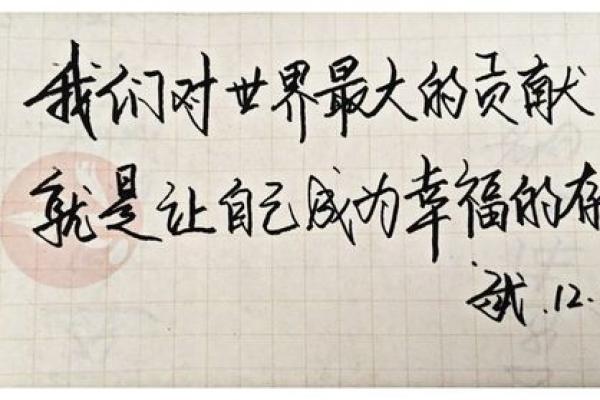 我们对世界最大的贡献
就是让自己成为幸福的存
12.